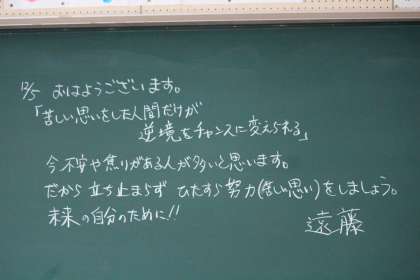 12/5 おはようございます。
「苦しい思いをした人間だけが
逆境をチャンスに変えられる」
今不安や焦りがある人が多いと思います。
だから立ち止まらず ひたすら努力(苦しい思い)をしましょう。
未来の自分のために!!
遠藤